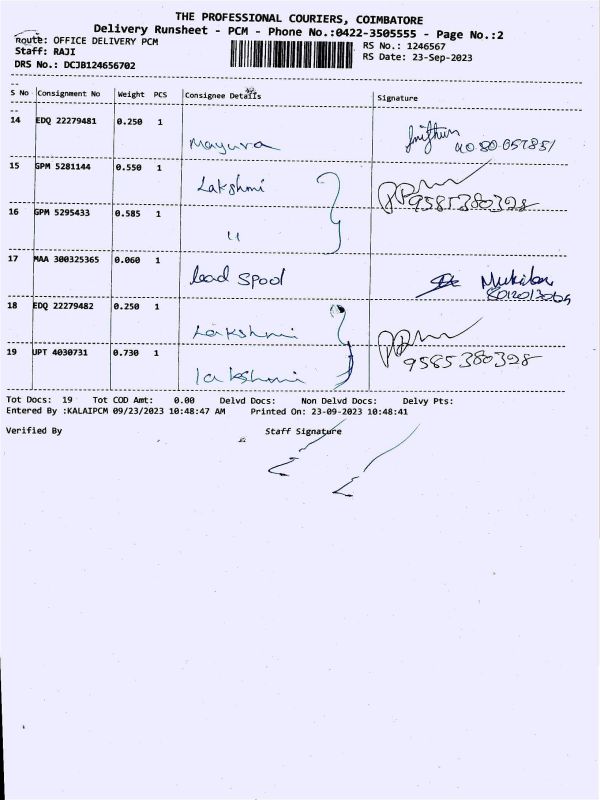 THE PROFESSIONAL COURIERS, COIMBATORE
Delivery Runsheet - PCM - Phone No.:0422-3505555 - Page No.:2
Route: OFFICE DELIVERY PCM
RS No.: 1246567
Staff: RAJI
RS Date: 23-Sep-2023
DRS No.: DCJB124656702
S No Consignment No Weight PCS Consignee Details Signature
14 EDQ 22279481 0.250 1
Mayura
15 GPM 5281144 0.550 1
Lakshmi
9585380398
16 GPM 5295433 0.585 1
17 MAA 300325365 0.060 1
lead spool
18 EDQ 22279482 0.250 1
Lakshmi
19 UPT 4030731 0.730 1
9585380398
lakshmi
Tot Docs: 19 Tot COD Amt: 0.00 Delvd Docs: Non Delvd Docs: Delvy Pts:
Entered By :KALAIPCM 09/23/2023 10:48:47 AM Printed On: 23-09-2023 10:48:41
Verified By Staff Signature